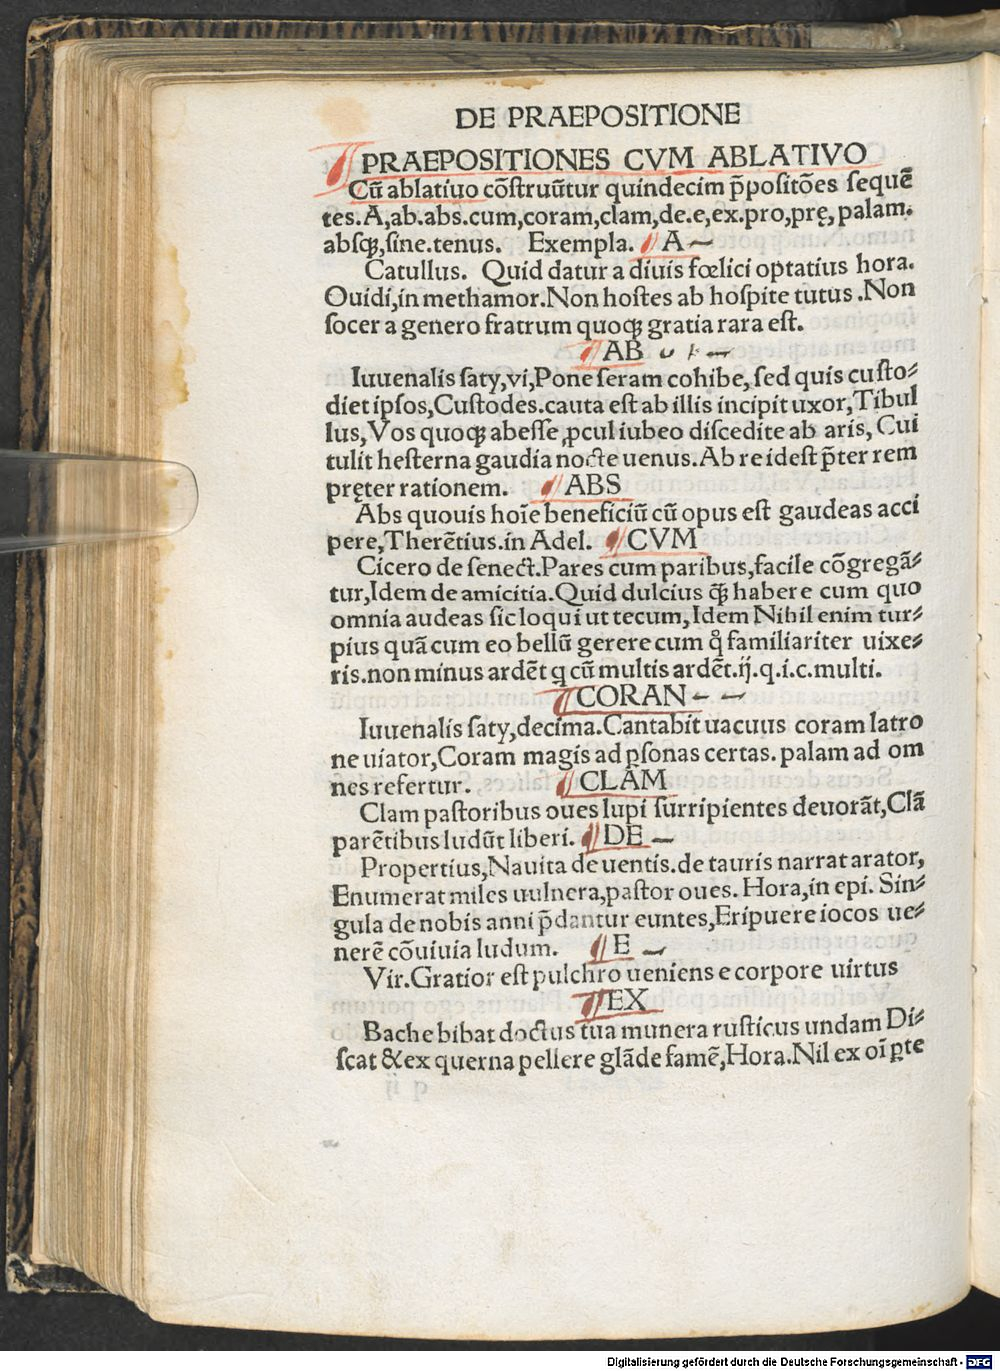 DE PRAEPOSITIONE
¶ PRAEPOSITIONES CVM ABLATIVO
Cū ablatiuo cōstruūtur quindecim p̄positōes sequē
tes.A,ab.abs.cum,coram,clam,de.e,ex.pro,prę,palam.
absqꝫ,sine.tenus. Exempla. ¶ A
Catullus. Quid datur a diuis fœlici optatius hora.
Ouidi,in methamor.Non hostes ab hospite tutus.Non
socer a genero fratrum quoqꝫ gratia rara est.
¶ AB
Iuuenalis saty,vi,Pone seram cohibe, sed quis custo⸗
diet ipsos,Custodes.cauta est ab illis incipit uxor,Tibul
lus,Vos quoqꝫ abesse ꝓcul iubeo discedite ab aris, Cui
tulit hesterna gaudia nocte uenus.Ab re idest p̄ter rem
pręter rationem. ¶ ABS
Abs quouis hoīe beneficiū cū opus est gaudeas acci
pere,Therētius.in Adel. ¶ CVM
Cicero de senect.Pares cum paribus,facile cōgregā⸗
tur,Idem de amicitia.Quid dulcius qꝫ̄ habere cum quo
omnia audeas sic loqui ut tecum,Idem Nihil enim tur⸗
pius quā cum eo bellū gerere cum q̊ familiariter uixe⸗
ris.non minus ardēt q cū multis ardēt.ij.q.i.c.multi.
¶ CORAN
Iuuenalis saty,decima.Cantabit uacuus coram latro
ne uiator,Coram magis ad ꝑsonas certas. palam ad om
nes refertur. ¶ CLAM
Clam pastoribus oues lupi surripientes deuorāt,Clā
parētibus ludūt liberi. ¶ DE
Propertius,Nauita de uentis.de tauris narrat arator,
Enumerat miles uulnera,pastor oues. Hora,in epi. Sin⸗
gula de nobis anni p̄dantur euntes,Eripuere iocos ue⸗
nerē cōuiuia ludum. ¶ E
Vir.Gratior est pulchro ueniens e corpore uirtus
¶ EX
Bache bibat doctus tua munera rusticus undam Di⸗
scat & ex querna pellere glāde famē,Hora.Nil ex oī ꝑte
Digitalisierung gefördert durch die Deutsche Forschungsgemeinschaft - DFG